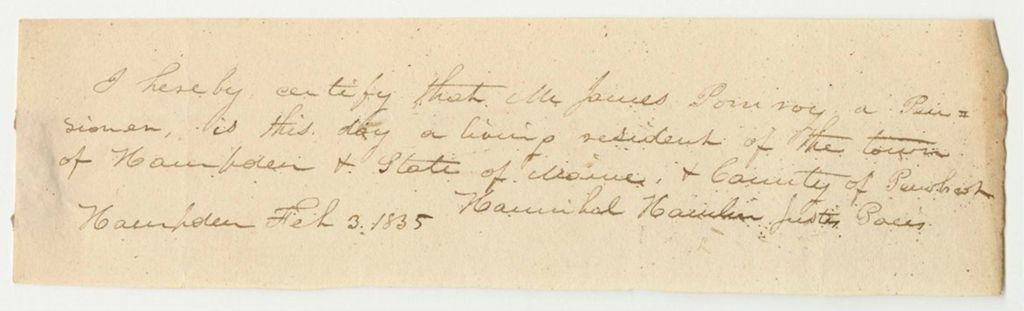 I hereby certify that Mr James Pomroy, a Pen=
sioner, is this day a living resident of the town
of Hampden & State of Maine, & County of Penobscot
Hampden Feb 3. 1835 Hannibal Hamlin Justis Pacis